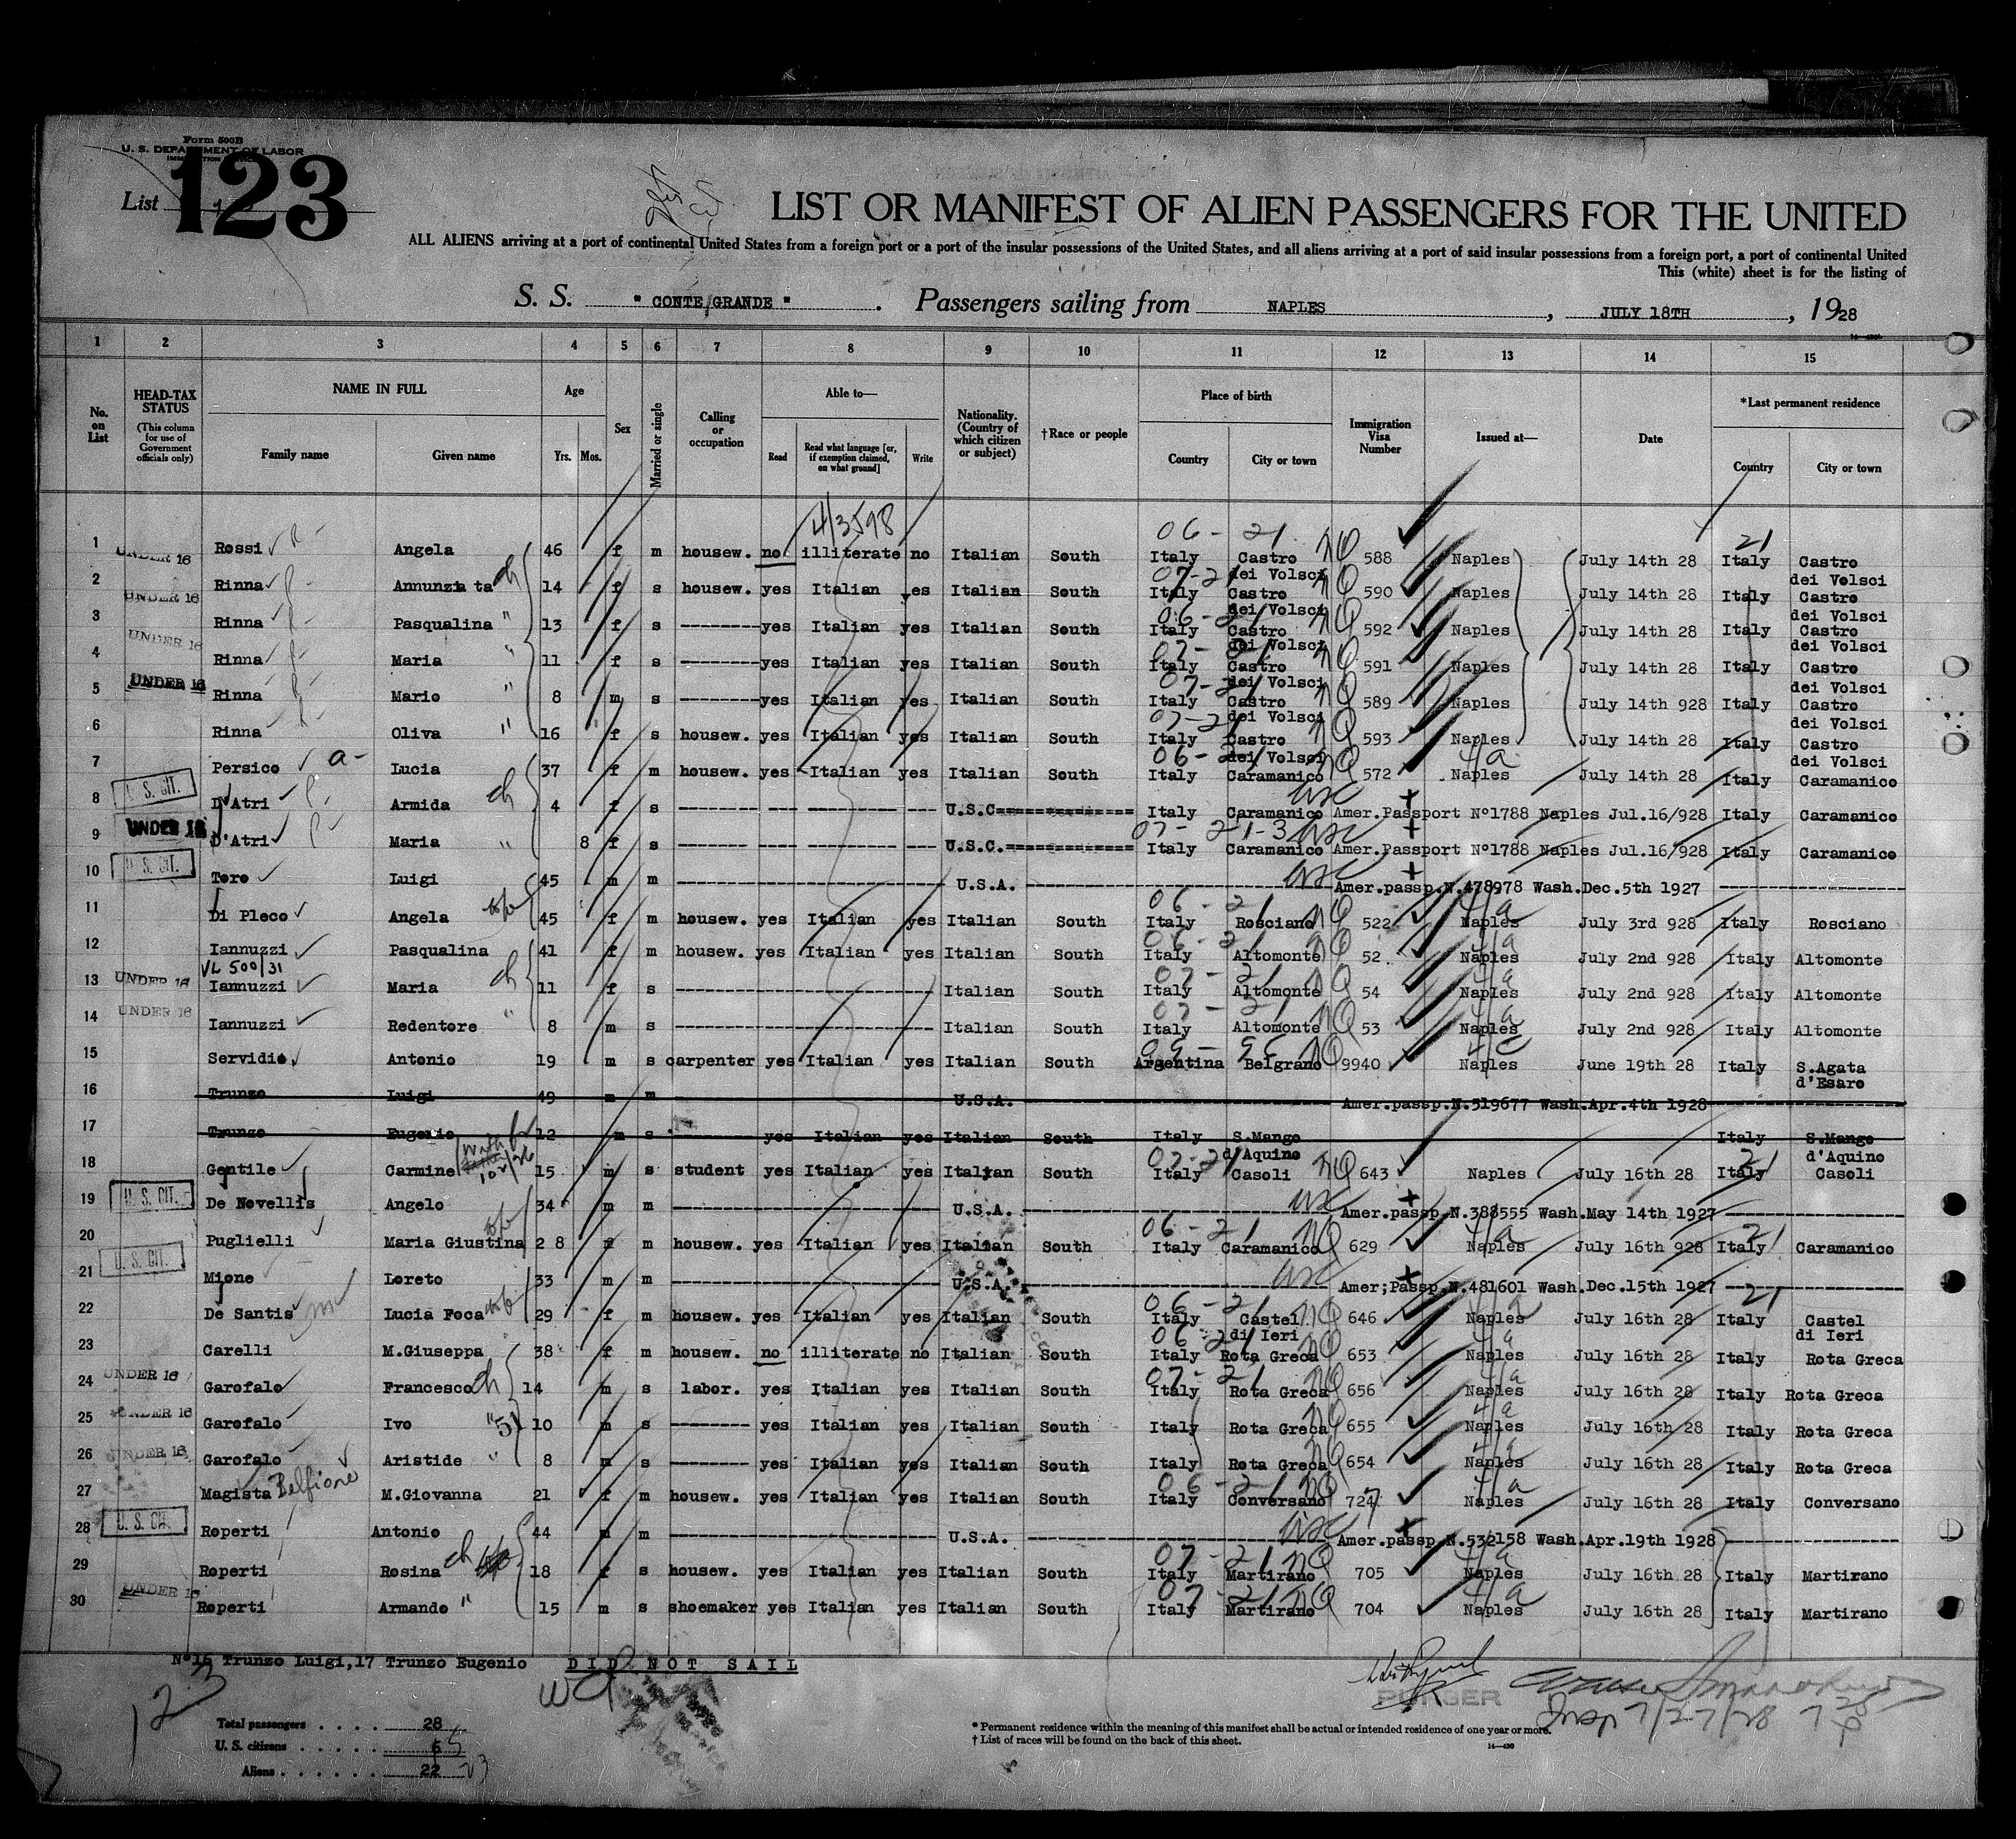 Form 500B
U. S. DEPARTMENT OF LABOR
List 123
LIST OR MANIFEST OF ALIEN PASSENGERS FOR THE UNITED
ALL ALIENS arriving at a port of continental United States from a foreign port or a port of the insular possessions of the United States, and all aliens arriving at a port of said insular possessions from a foreign port, a port of continental United
This (white) sheet is for the listing of
S. S. " CONTE GRANDE " . Passengers sailing from NAPLES , JULY 18TH , 1928
1 2 3 4 5 6 7 8 9 10 11 12 13 14 15
No. on List HEAD-TAX STATUS (This column for use of Government officials only) NAME IN FULL Family name Given name Age Yrs. Mos. Sex Married or single Calling or occupation Able to— Read Read what language [or, if exemption claimed, on what ground] Write Nationality. (Country of which citizen or subject) †Race or people Place of birth Country City or town Immigration Visa Number Issued at— Date *Last permanent residence Country City or town
4/3598
06 - 21 21
1 UNDER 16 Rossi Angela 46 f m housew. no illiterate no Italian South Italy Castro dei Volsci NQ 588 Naples July 14th 28 Italy Castro dei Volsci
2 UNDER 16 Rinna Annunziata ch 14 f s housew. yes Italian yes Italian South Italy Castro dei Volsci NQ 590 Naples July 14th 28 Italy Castro dei Volsci
3 UNDER 16 Rinna Pasqualina " 13 f s -------- yes Italian yes Italian South Italy Castro dei Volsci NQ 592 Naples July 14th 28 Italy Castro dei Volsci
4 Rinna Maria " 11 f s -------- yes Italian yes Italian South Italy Castro dei Volsci NQ 591 Naples July 14th 28 Italy Castro dei Volsci
5 UNDER 16 Rinna Mario " 8 m s -------- yes Italian yes Italian South Italy Castro dei Volsci NQ 589 Naples July 14th 928 Italy Castro dei Volsci
6 Rinna Oliva " 16 f s housew. yes Italian yes Italian South Italy Castro dei Volsci NQ 593 Naples July 14th 28 Italy Castro dei Volsci
7 Persico a- Lucia 37 f m housew. yes Italian yes Italian South Italy Caramanico NQ 572 Naples July 14th 28 Italy Caramanico
8 U. S. CIT. D'Atri Armida ch 4 f s U.S.C============= Italy Caramanico usc Amer.Passport Nº1788 Naples Jul.16/928 Italy Caramanico
9 UNDER 16 D'Atri Maria " 8 f s U.S.C.============ Italy Caramanico usc Amer.Passport Nº1788 Naples Jul.16/928 Italy Caramanico
10 U. S. CIT. Toro Luigi 45 m m U.S.A. usc Amer.passp.N.478978 Wash.Dec.5th 1927
11 Di Pleco Angela 45 f m housew. yes Italian yes Italian South Italy Rosciano NQ 522 Naples July 3rd 928 Italy Rosciano
12 Iannuzzi Pasqualina 41 f m housew. yes Italian yes Italian South Italy Altomonte NQ 52 Naples July 2nd 928 Italy Altomonte
VL 500/31
13 UNDER 16 Iannuzzi Maria ch 11 f s Italian South Italy Altomonte NQ 54 Naples July 2nd 928 Italy Altomonte
14 UNDER 16 Iannuzzi Redentore " 8 m s Italian South Italy Altomonte NQ 53 Naples July 2nd 928 Italy Altomonte
15 Servidio Antonio 19 m s carpenter yes Italian yes Italian South Argentina Belgrano NQ 9940 Naples June 19th 28 Italy S.Agata d'Esaro
16 Trunzo Luigi 49 m m U.S.A. Amer.passp.N.519677 Wash.Apr.4th 1928
17 Trunzo Eugenio 12 m s -------- yes Italian yes Italian South Italy S.Mango d'Aquino Italy S.Mango d'Aquino
18 Gentile Carmine 15 m s student yes Italian yes Italian South Italy Casoli NQ 643 Naples July 16th 28 Italy Casoli
19 U. S. CIT. De Novellis Angelo 34 m m U.S.A. usc Amer.passp.N.388555 Wash.May 14th 1927
20 Puglielli Maria Giustina 28 f m housew. yes Italian yes Italian South Italy Caramanico NQ 629 Naples July 16th 928 Italy Caramanico
21 U. S. CIT. Mione Loreto 33 m m U.S.A. usc Amer;Passp.N.481601 Wash.Dec.15th 1927
22 De Santis Lucia Foca 29 f m housew. yes Italian yes Italian South Italy Castel di Ieri NQ 646 Naples July 16th 28 Italy Castel di Ieri
23 Carelli M.Giuseppa 38 f m housew. no illiterate no Italian South Italy Rota Greca NQ 653 Naples July 16th 28 Italy Rota Greca
24 UNDER 16 Garofalo Francesco ch 14 m s labor. yes Italian yes Italian South Italy Rota Greca NQ 656 Naples July 16th 28 Italy Rota Greca
25 UNDER 16 Garofalo Ivo " 10 m s -------- yes Italian yes Italian South Italy Rota Greca NQ 655 Naples July 16th 28 Italy Rota Greca
26 UNDER 16 Garofalo Aristide " 8 m s -------- yes Italian yes Italian South Italy Rota Greca NQ 654 Naples July 16th 28 Italy Rota Greca
27 Magista Belfiore M.Giovanna 21 f m housew. yes Italian yes Italian South Italy Conversano NQ 727 Naples July 16th 28 Italy Conversano
28 U. S. CIT. Roperti Antonio 44 m m U.S.A. usc Amer.passp.N.532158 Wash.Apr.19th 1928
29 Roperti Rosina ch 18 f s housew. yes Italian yes Italian South Italy Martirano NQ 705 Naples July 16th 28 Italy Martirano
30 UNDER 16 Roperti Armando " 15 m s shoemaker yes Italian yes Italian South Italy Martirano NQ 704 Naples July 16th 28 Italy Martirano
Nº16 Trunzo Luigi,17 Trunzo Eugenio DID NOT SAIL
123
PURSER
Insp 7/27/28
Total passengers . . . . 28
U. S. citizens . . . . . 6 5
Aliens . . . . . . 22 23
* Permanent residence within the meaning of this manifest shall be actual or intended residence of one year or more.
† List of races will be found on the back of this sheet.